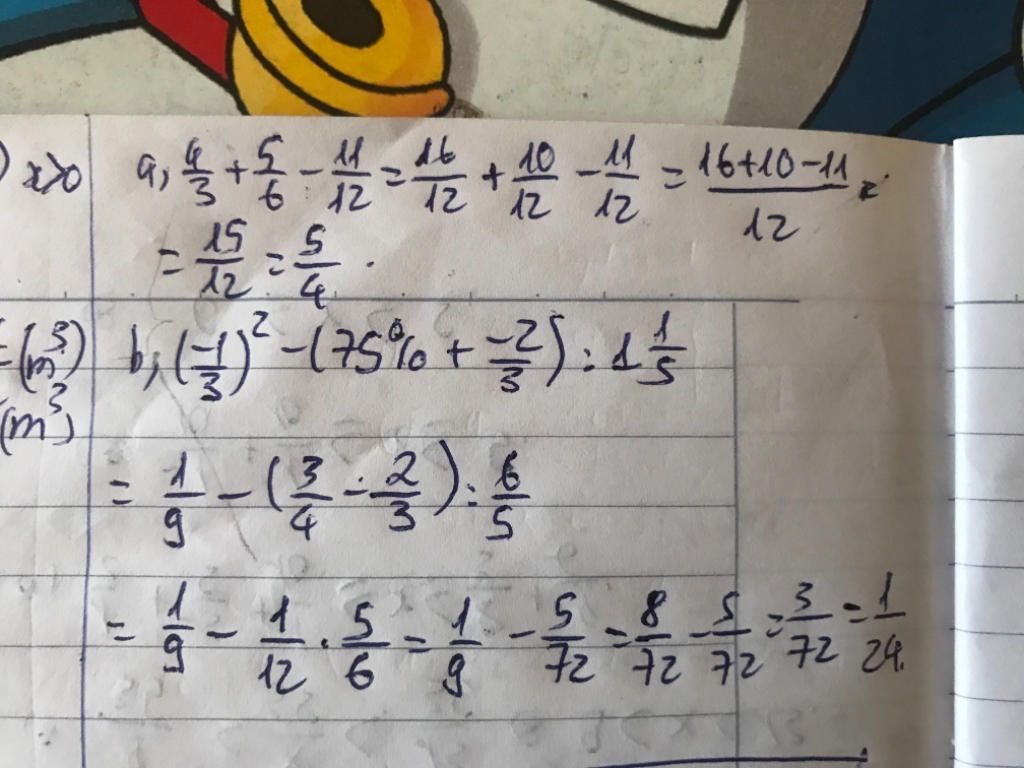 ) x>0
a, 4/3 + 5/6 - 11/12 = 16/12 + 10/12 - 11/12 = (16+10-11)/12 =
= 15/12 = 5/4 .
=(m³)
b, (-1/3)² - (75% + -2/3) : 1 1/5
(m³)
= 1/9 - (3/4 - 2/3) : 6/5
= 1/9 - 1/12 . 5/6 = 1/9 - 5/72 = 8/72 - 5/72 = 3/72 = 1/24.